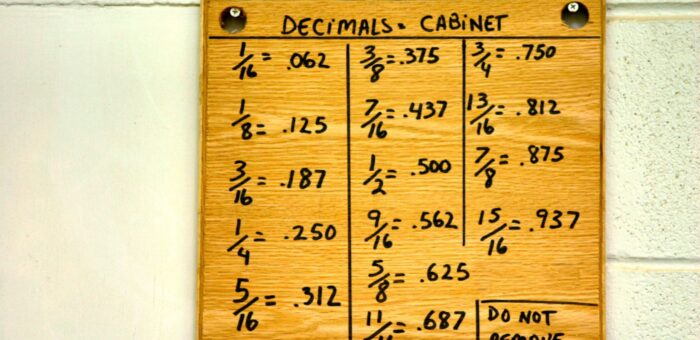 DECIMALS - CABINET
1/16 = .062
1/8 = .125
3/16 = .187
1/4 = .250
5/16 = .312
3/8 = .375
7/16 = .437
1/2 = .500
9/16 = .562
5/8 = .625
11/16 = .687
3/4 = .750
13/16 = .812
7/8 = .875
15/16 = .937
DO NOT
REMOVE